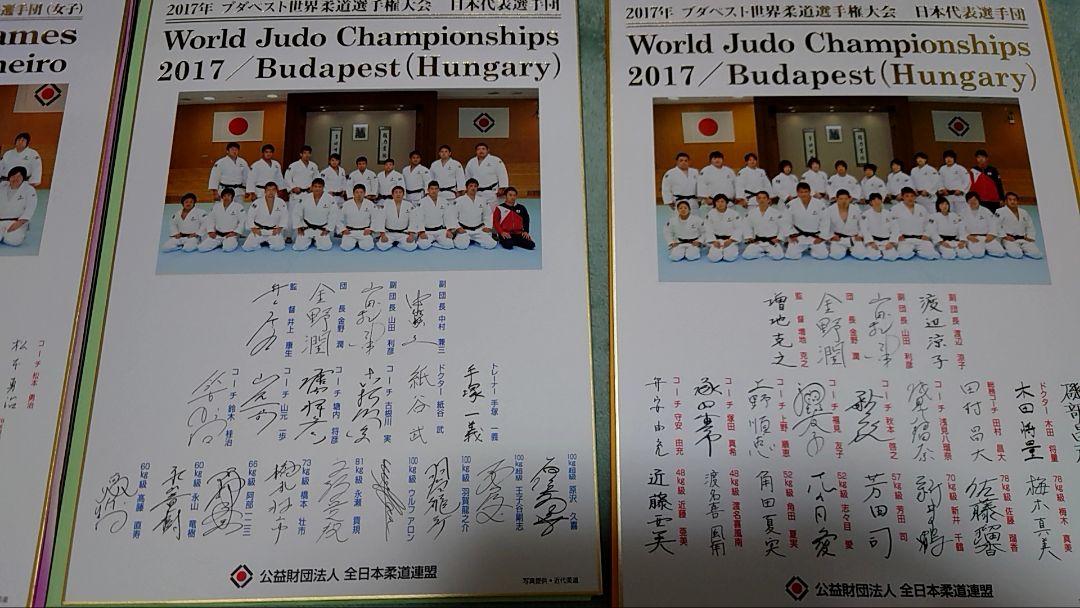 選手団(女子)
ames
neiro
コーチ 松本 勇治
2017年 ブダペスト世界柔道選手権大会 日本代表選手団
World Judo Championships
2017/Budapest(Hungary)
副団長 中村 兼三
副団長 山田 利彦
団長 金野 潤
監督 井上 康生
トレーナー 手塚 一義
手塚一義
ドクター 紙谷 武
紙谷 武
コーチ 古根川 実
コーチ 塘内 将彦
コーチ 山元 一歩
コーチ 鈴木 桂治
100kg超級 原沢 久喜
100kg超級 王子谷剛志
100kg級 羽賀龍之介
100kg級 ウルフ アロン
81kg級 永瀬 貴規
73kg級 橋本 壮市
66kg級 阿部 一二三
60kg級 永山 竜樹
60kg級 高藤 直寿
公益財団法人 全日本柔道連盟
写真提供・近代柔道
2017年 ブダペスト世界柔道選手権大会 日本代表選手団
World Judo Championships
2017/Budapest(Hungary)
副団長 渡辺 涼子
渡辺涼子
副団長 山田 利彦
団長 金野 潤
金野 潤
監督 増地 克之
増地克之
ドクター 木田 将量
木田将量
総務コーチ 田村 昌大
田村昌大
コーチ 浅見八瑠奈
コーチ 秋本 啓之
コーチ 福見 友子
コーチ 上野 順恵
上野順恵
コーチ 塚田 真希
コーチ 守安 由充
78kg級 梅木 真美
梅木真美
78kg級 佐藤 瑠香
佐藤瑠香
70kg級 新井 千鶴
57kg級 芳田 司
芳田 司
52kg級 志々目 愛
52kg級 角田 夏実
角田夏実
48kg級 渡名喜風南
渡名喜風南
48kg級 近藤 亜美
近藤亜美
公益財団法人 全日本柔道連盟